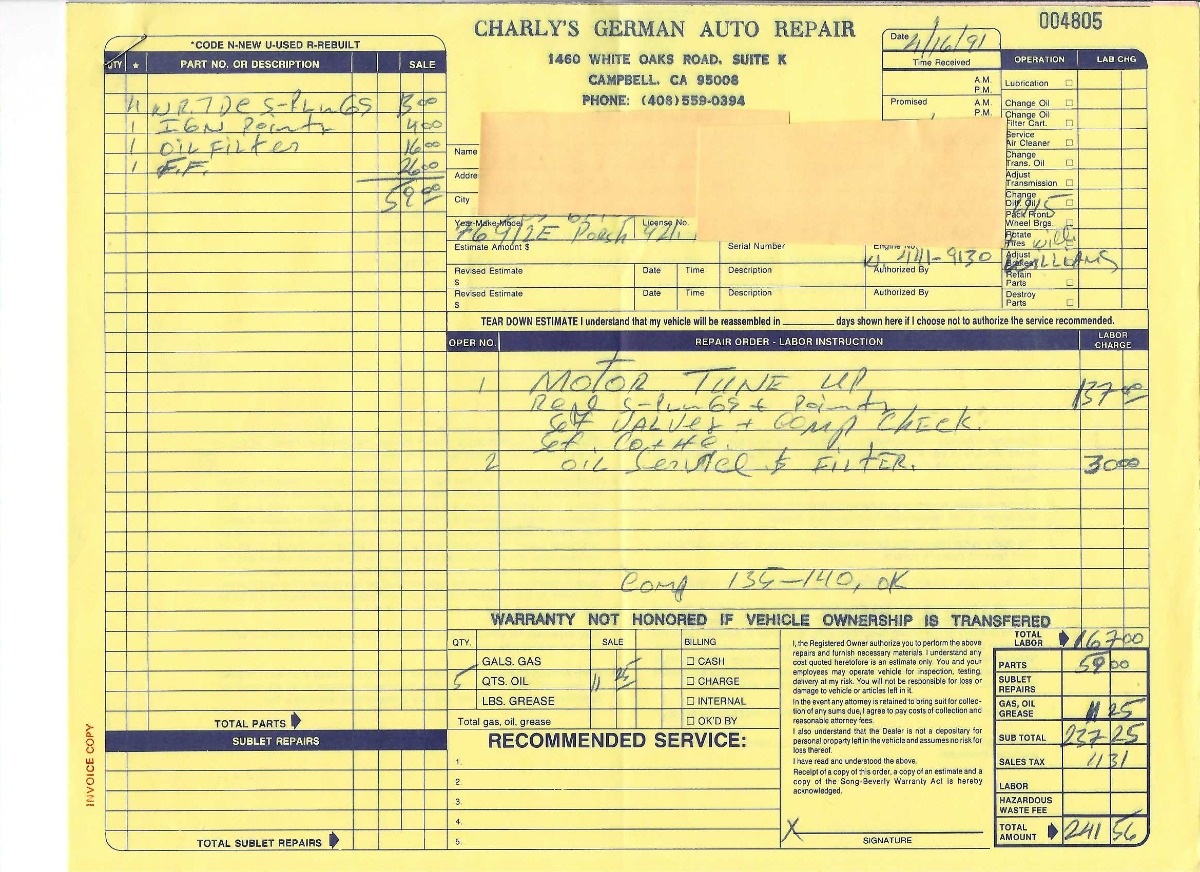 CHARLY'S GERMAN AUTO REPAIR
1460 WHITE OAKS ROAD, SUITE K
CAMPBELL, CA 95008
PHONE: (408) 559-0394
004805
Date 4/16/91
Time Received
A.M.
P.M.
Promised A.M.
P.M.
*CODE N-NEW U-USED R-REBUILT
QTY * PART NO. OR DESCRIPTION SALE
4 WR7DC S-PLUGS 13 00
1 IGN Points 4 00
1 OIL FILTER 16 00
1 F.F. 26 00
59 00
TOTAL PARTS
SUBLET REPAIRS
TOTAL SUBLET REPAIRS
INVOICE COPY
Name
Addre
City
Year-Make-Model License No.
76 912E Porsh 924
Estimate Amount $ Serial Number Engine No.
441-9130
Revised Estimate Date Time Description Authorized By
$
Revised Estimate Date Time Description Authorized By
$
OPERATION LAB CHG
Lubrication
Change Oil
Change Oil Filter Cart.
Service Air Cleaner
Change Trans. Oil
Adjust Transmission
Change Diff. Oil
Pack Front Wheel Brgs.
Rotate Tires
Adjust
Retain Parts
Destroy Parts
will
WILLIAMS
TEAR DOWN ESTIMATE I understand that my vehicle will be reassembled in ________ days shown here if I choose not to authorize the service recommended.
OPER NO. REPAIR ORDER - LABOR INSTRUCTION LABOR CHARGE
1 MOTOR TUNE UP. 137 00
Repl S-Plugs + Points
Set VALVES + Comp CHECK.
Set. Co + Hc.
2 OIL Service & FILTER. 30 00
Comp 135-140, OK
WARRANTY NOT HONORED IF VEHICLE OWNERSHIP IS TRANSFERRED
QTY. SALE BILLING
GALS. GAS ☐ CASH
5 QTS. OIL 11 25 ☐ CHARGE
LBS. GREASE ☐ INTERNAL
Total gas, oil, grease ☐ OK'D BY
RECOMMENDED SERVICE:
1.
2.
3.
4.
5.
I, the Registered Owner authorize you to perform the above
repairs and furnish necessary materials. I understand any
cost quoted heretofore is an estimate only. You and your
employees may operate vehicle for inspection, testing,
delivery at my risk. You will not be responsible for loss or
damage to vehicle or articles left in it.
In the event any attorney is retained to bring suit for collec-
tion of any sums due, I agree to pay costs of collection and
reasonable attorney fees.
I also understand that the Dealer is not a depositary for
personal property left in the vehicle and assumes no risk for
loss thereof.
I have read and understood the above.
Receipt of a copy of this order, a copy of an estimate and a
copy of the Song-Beverly Warranty Act is hereby
acknowledged.
X
SIGNATURE
TOTAL LABOR 167 00
PARTS 59 00
SUBLET REPAIRS
GAS, OIL GREASE 11 25
SUB TOTAL 237 25
SALES TAX 4 31
LABOR
HAZARDOUS WASTE FEE
TOTAL AMOUNT 241 56